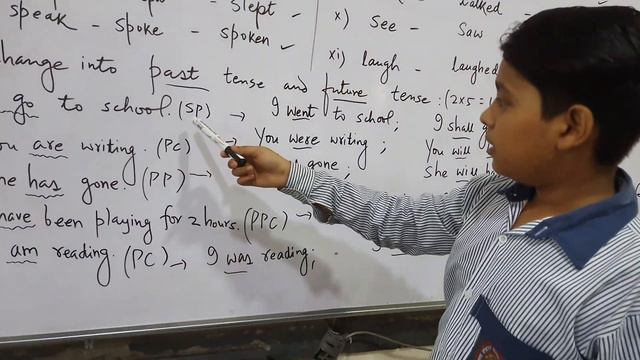 speak - spoke - slept -
- spoken ✓
walked -
x) see - saw
xi) laugh - laughed
hange into past tense and future tense : (2x5=1
go to school. (SP) → I went to school; I shall g
ou are writing. (PC) → You were writing ; You will
he has gone. (PP) → gone ; She will h
have been playing for 2 hours. (PPC) →
am reading. (PC) → I was reading;